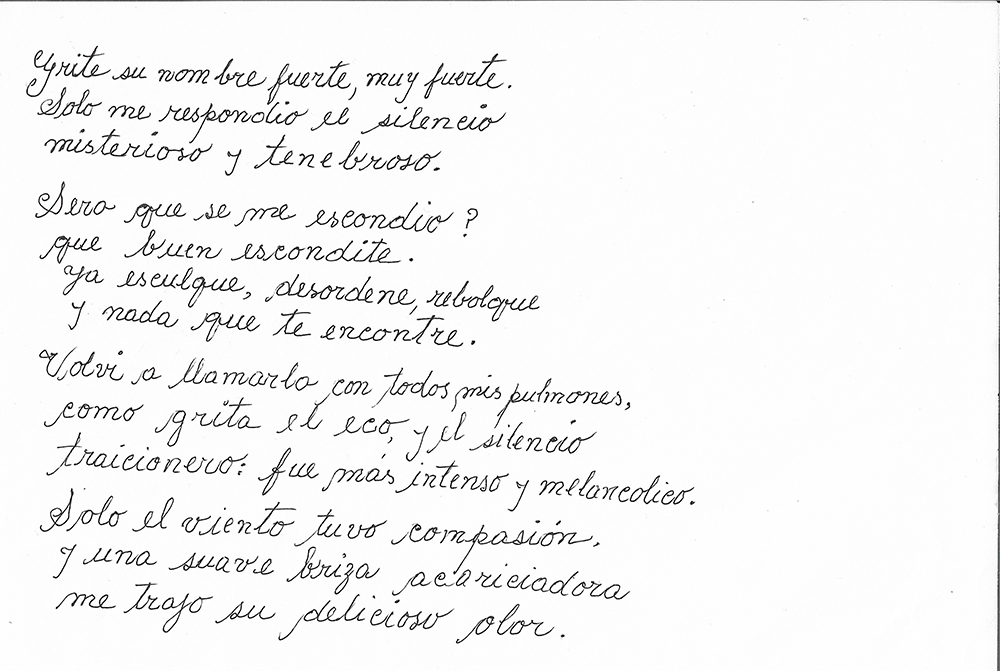 Grite su nombre fuerte, muy fuerte.
Solo me respondio el silencio
misterioso y tenebroso.
Sera que se me escondio?
que buen escondite.
Ya esculque, desordene, rebolque
y nada que te encontre.
Volvi a llamarla con todos mis pulmones,
como grita el eco, y el silencio
traicionero: fue más intenso y melancolico.
Solo el viento tuvo compasión,
y una suave briza acariciadora
me trajo su delicioso olor.